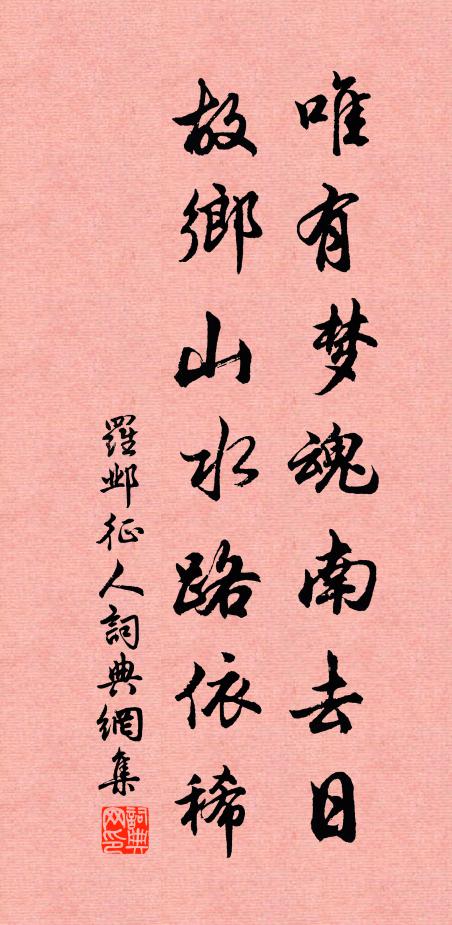 唯有梦魂南去日
故鄉山水路依稀
羅邺征人詞典網集
詞典网印